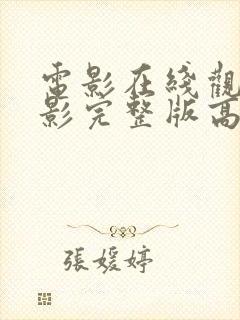 電影在綫觀
影完整版高
張媛婷